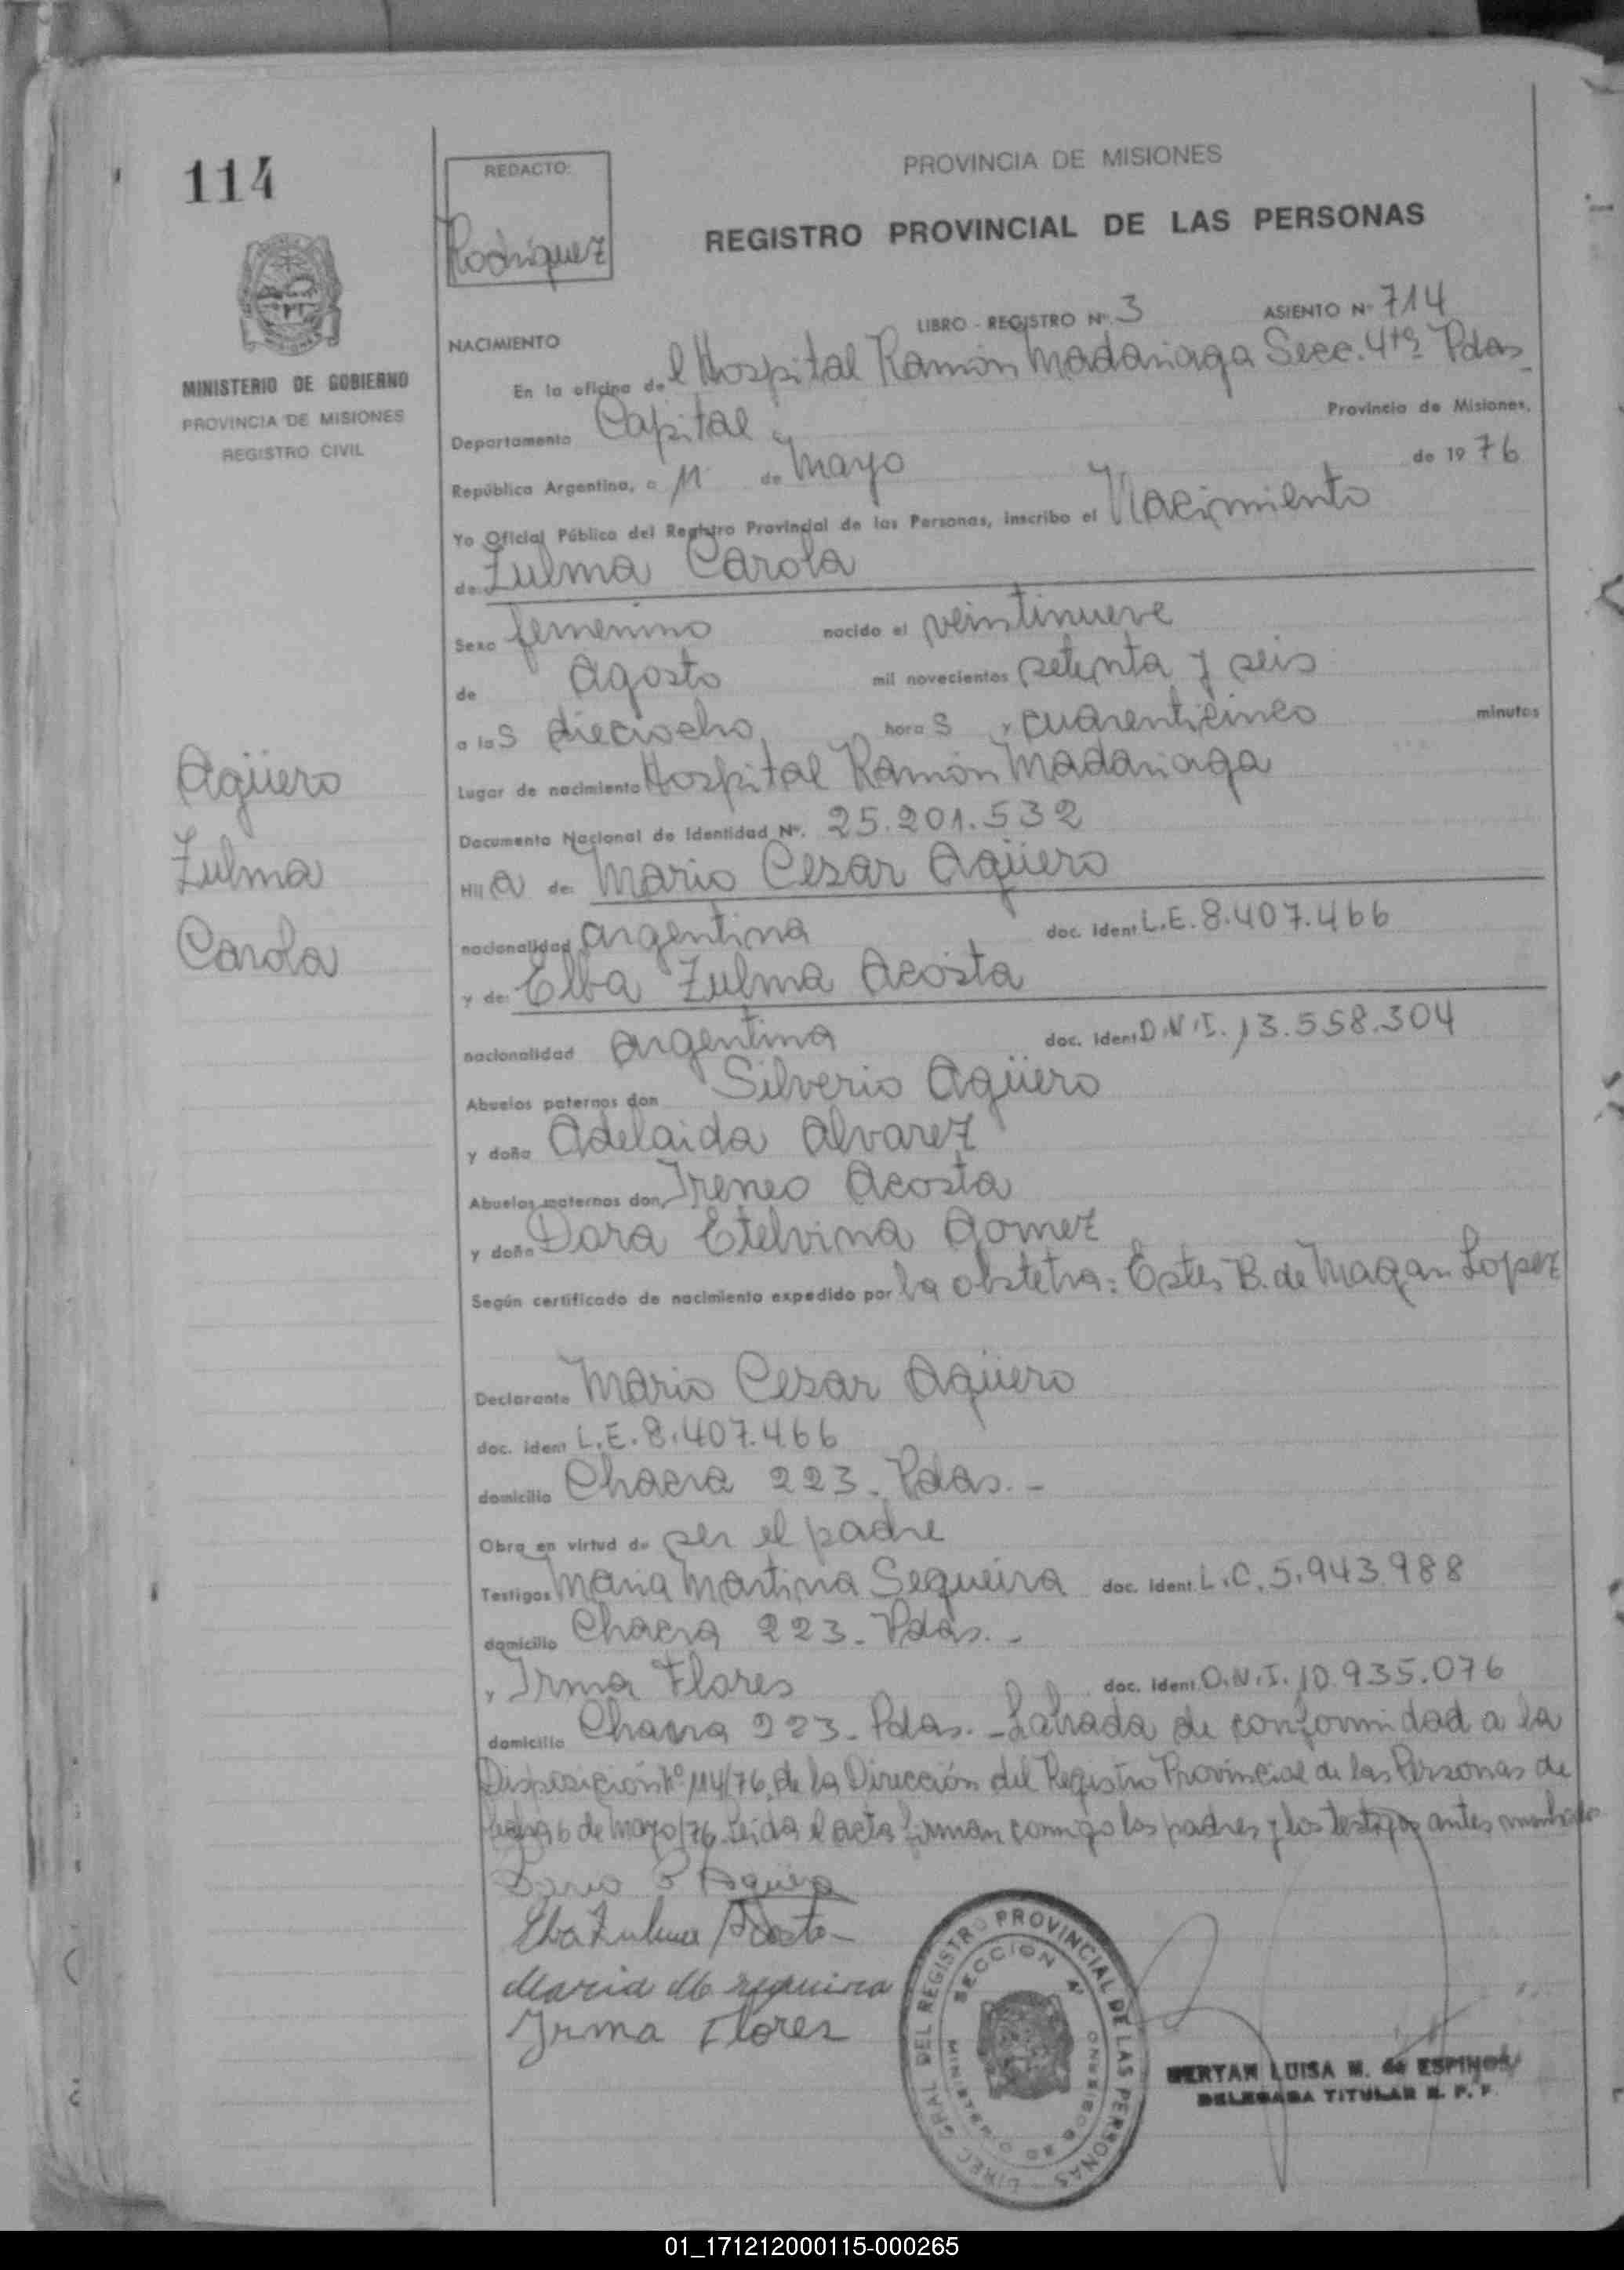 114
REDACTO:
Rodriguez
PROVINCIA DE MISIONES
REGISTRO PROVINCIAL DE LAS PERSONAS
MINISTERIO DE GOBIERNO
PROVINCIA DE MISIONES
REGISTRO CIVIL
LIBRO - REGISTRO Nº. 3 ASIENTO Nº 714
NACIMIENTO
En la oficina del Hospital Ramón Madariaga Secc. 4tª Pdas
Departamento Capital Provincia de Misiones,
República Argentina, a 11 de Mayo de 1976
Yo Oficial Público del Registro Provincial de las Personas, inscribo el Nacimiento
de: Zulma Carola
Sexo femenino nacido el veintinueve
de Agosto mil novecientos setenta y seis
a las dieciocho horas y cuarenticinco minutos
Lugar de nacimiento Hospital Ramón Madariaga
Documento Nacional de Identidad Nº. 25.201.532
Agüero
Zulma
Carola
Hija de: Mario Cesar Agüero
nacionalidad argentina doc. ident L.E. 8.407.466
y de: Elba Zulma Acosta
nacionalidad argentina doc. ident D.N.I. 13.558.304
Abuelos paternos don Silverio Agüero
y doña Adelaida Alvarez
Abuelos maternos don Ireneo Acosta
y doña Dora Etelvina Gomez
Según certificado de nacimiento expedido por la obstetra: B. de Magan Lopez
Declarante Mario Cesar Agüero
doc. ident L.E. 8.407.466
domicilio Chacra 223. Pdas. -
Obra en virtud de ser el padre
Testigos Maria Martina Sequeira doc. ident. L.C. 5.943.988
domicilio Chacra 223. Pdas. -
y Irma Flores doc. ident. D.N.I. 10.935.076
domicilio Chacra 223. Pdas. - Labrada de conformidad a la
Disposición Nº 114/76 de la Dirección del Registro Provincial de las Personas de
fecha 6 de Mayo/76. Leída el acta firman conmigo los padres y los testigos antes
Agüero
Elba Zulma Acosta
Maria M. sequeira
Irma Flores
DIREC. GRAL DEL REGISTRO PROVINCIAL DE LAS PERSONAS
SECCION 4ª
MINISTERIO DE GOBIERNO
LUISA M. de ESPINOSA
DELEGADA TITULAR R. P. P.
01_171212000115-000265